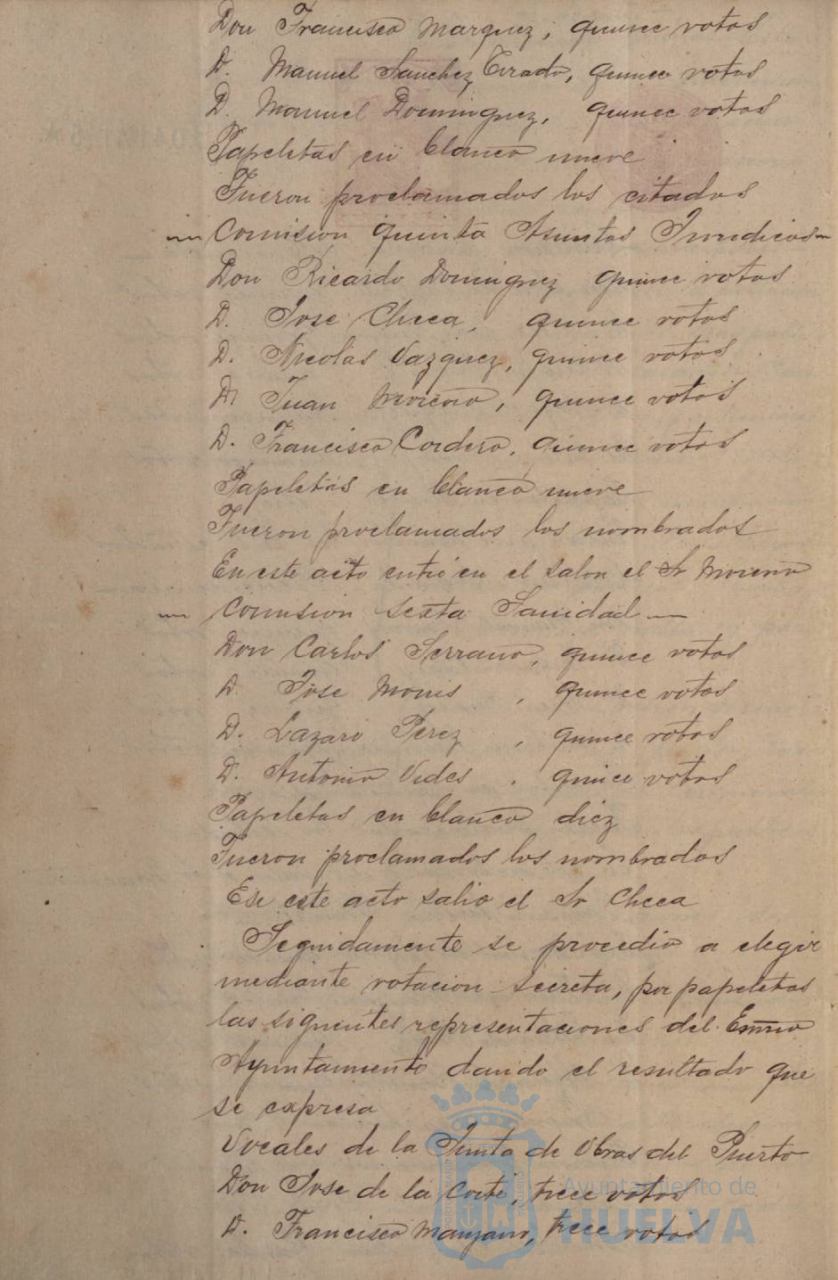 Don Francisco Marquez, quince votos
D. Manuel Sanchez Tirado, quince votos
D. Manuel Dominguez, quince votos
Papeletas en blanco nueve
Fueron proclamados los citados
Comision quinta Asuntos Juridicos
Don Ricardo Dominguez quince votos
D. Jose Checa, quince votos
D. Nicolas Vazquez, quince votos
D. Juan Moreno, quince votos
D. Francisco Cordero, quince votos
Papeletas en blanco nueve
Fueron proclamados los nombrados
En este acto entró en el salon el Sr Moreno
Comision sexta Sanidad
Don Carlos Serrano, quince votos
D. Jose Monis, quince votos
D. Lazaro Perez, quince votos
D. Antonio Vides, quince votos
Papeletas en blanco diez
Fueron proclamados los nombrados
En este acto salio el Sr Checa
Seguidamente se procedio a elegir
mediante votacion secreta, por papeletas
las siguentes representaciones del Exmo
Ayuntamiento dando el resultado que
se expresa
Vocales de la Junta de Obras del Puerto
Don Jose de la Corte, trece votos
D. Francisco Manzano, trece votos
Ayuntamiento de
HUELVA